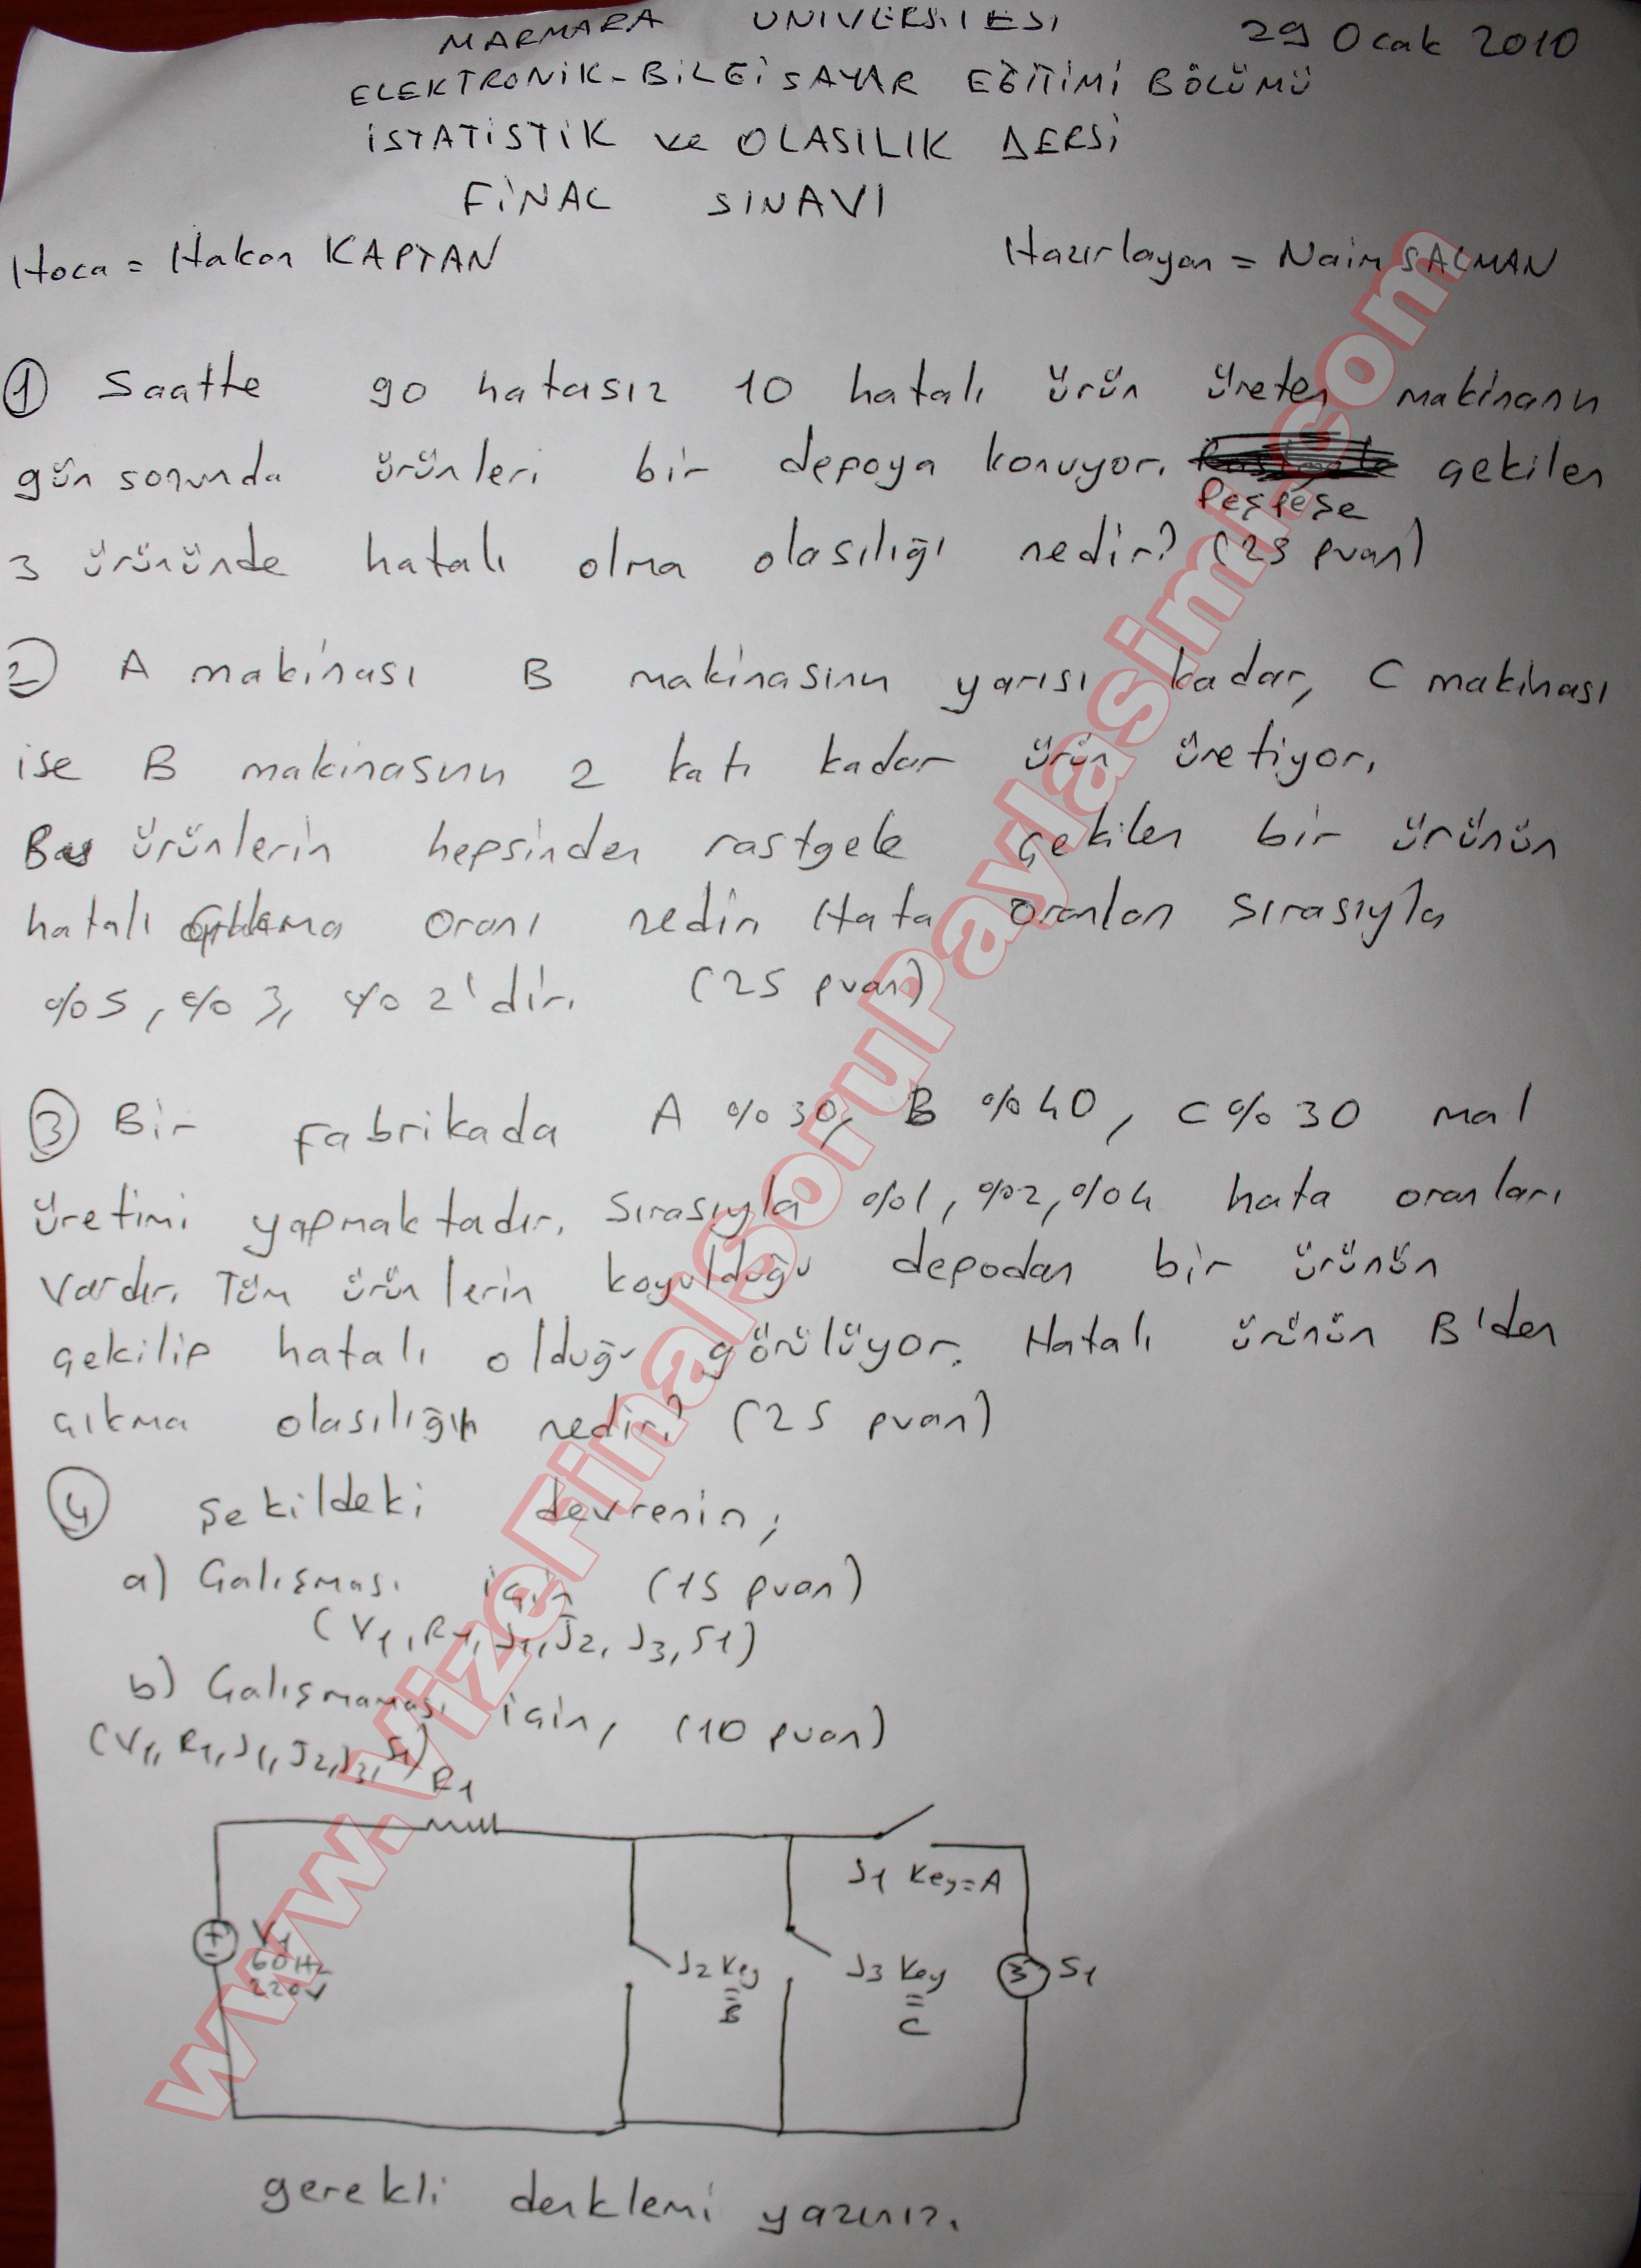 MARMARA UNIVERSITESI 29 Ocak 2010
ELEKTRONİK-BİLGİSAYAR EĞİTİMİ BÖLÜMÜ
İSTATİSTİK ve OLASILIK DERSİ
FİNAL SINAVI
Hoca = Hakan KAPTAN Hazırlayan = Naim SALMAN
① Saatte 90 hatasız 10 hatalı ürün üreten makinanın
gün sonunda ürünleri bir depoya konuyor. çekilen
Peşpeşe
3 ürününde hatalı olma olasılığı nedir? (25 puan)
② A makinası B makinasının yarısı kadar, C makinası
ise B makinasının 2 katı kadar ürün üretiyor.
Bu ürünlerin hepsinden rastgele çekilen bir ürünün
hatalı oranı nedir. Hata oranları sırasıyla
%5, %3, %2'dir. (25 puan)
③ Bir fabrikada A %30, B %40, C %30 mal
üretimi yapmaktadır. Sırasıyla %1, %2, %4 hata oranları
vardır. Tüm ürünlerin koyulduğu depodan bir ürünün
çekilip hatalı olduğu görülüyor. Hatalı ürünün B'den
çıkma olasılığı nedir? (25 puan)
④ Şekildeki devrenin;
a) Çalışması için (15 puan)
(V1, R1, J1, J2, J3, S1)
b) Çalışmaması için, (10 puan)
(V1, R1, J1, J2, J3, S1)
R1
J1 Key=A
V1
60Hz
220V
J2 Key
=
B
J3 Key
=
C
S1
gerekli denklemi yazınız.
www.VizeFinalSoruPaylasimi.com